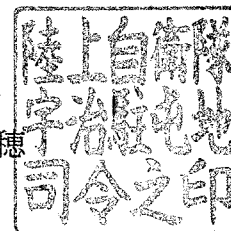 陸上自衛隊
宇治駐屯地
司令之印
穂